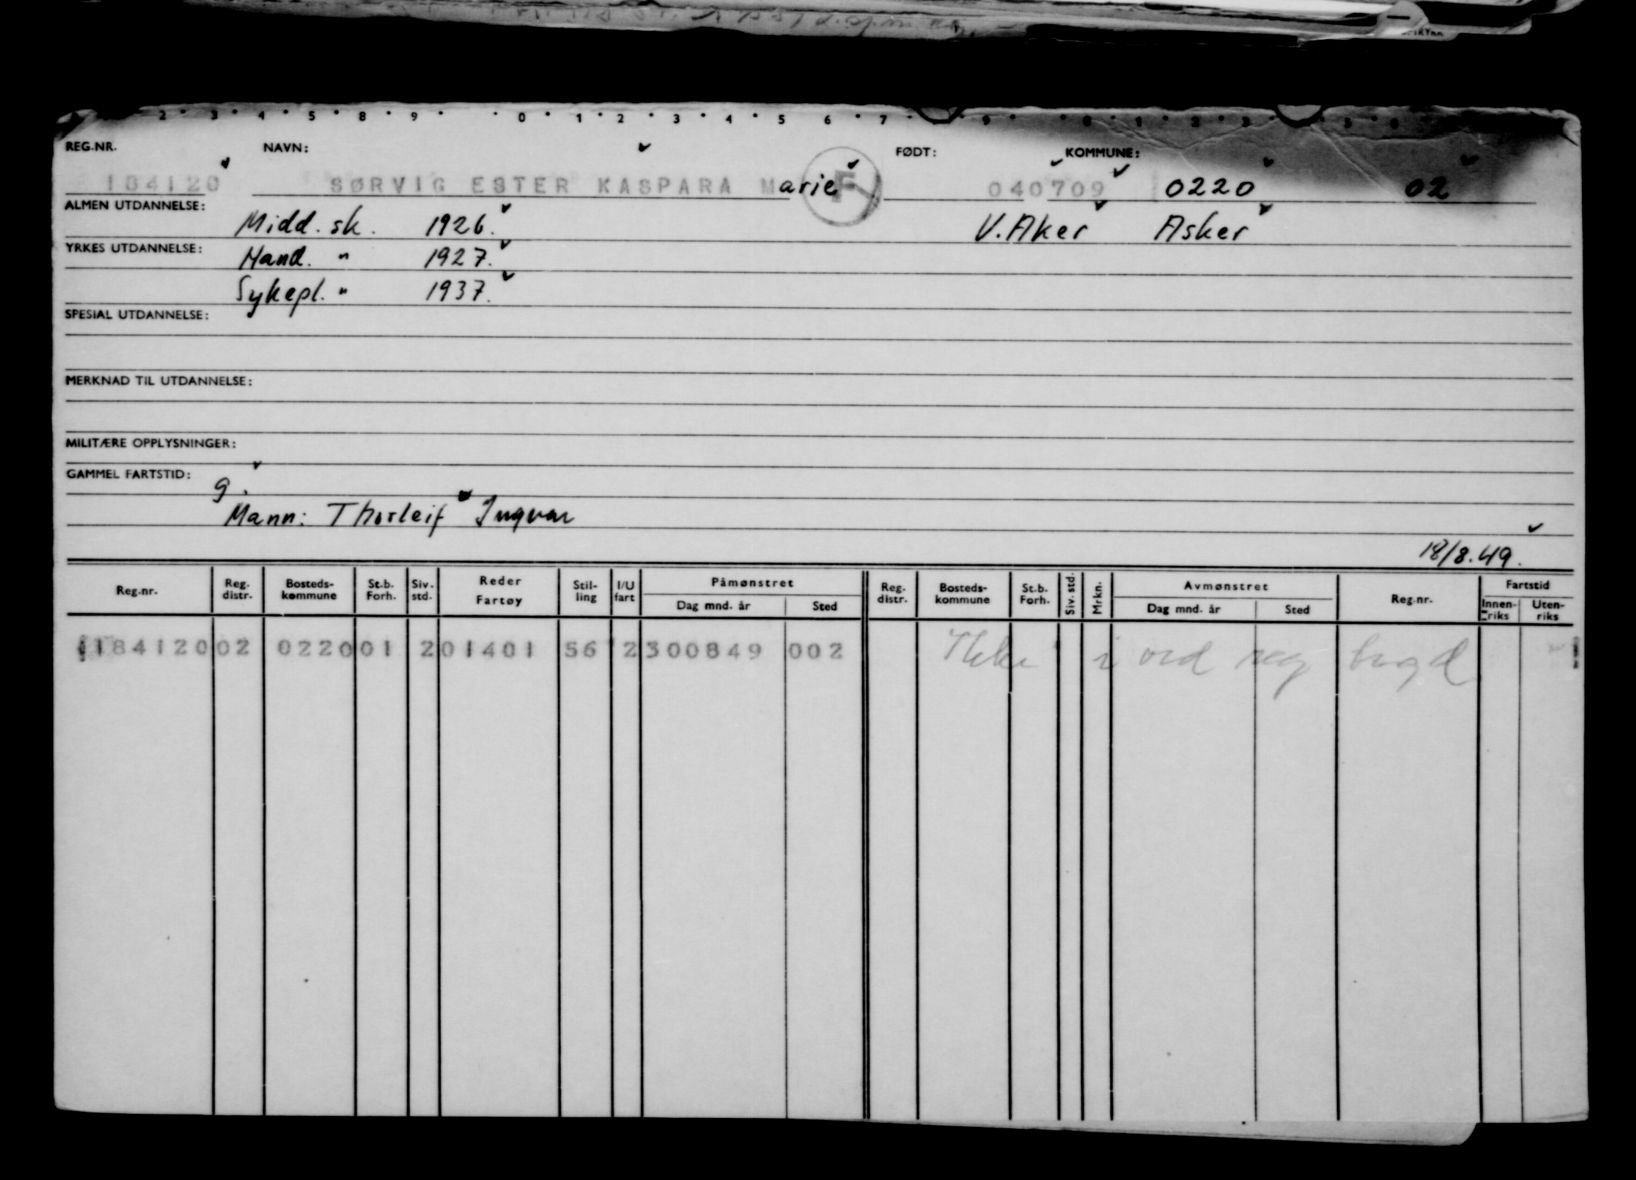 2 3 4 5 8 9 0 1 2 3 4 5 6 7 9 0 1 2 3 5 6
REG.NR. NAVN: FØDT: KOMMUNE:
184120 SØRVIG ESTER KASPARA Marie F 040709 0220 02
ALMEN UTDANNELSE: Midd. sk. 1926. V. Aker Asker
YRKES UTDANNELSE: Hand. " 1927.
Sykepl. " 1937.
SPESIAL UTDANNELSE:
MERKNAD TIL UTDANNELSE:
MILITÆRE OPPLYSNINGER:
GAMMEL FARTSTID:
g.
Mann: Thorleif Ingvar
18/8.49.
Reg.nr. Reg. distr. Bosteds-kommune St.b. Forh. Siv. std. Reder Fartøy Stil-ling I/U fart Påmønstret Dag mnd. år Sted Reg. distr. Bosteds-kommune St.b. Forh. Siv. std. Mrkn. Avmønstret Dag mnd. år Sted Reg.nr. Fartstid Innen-riks Uten-riks
184120 02 0220 01 2 01401 56 2 300849 002 Ikke i